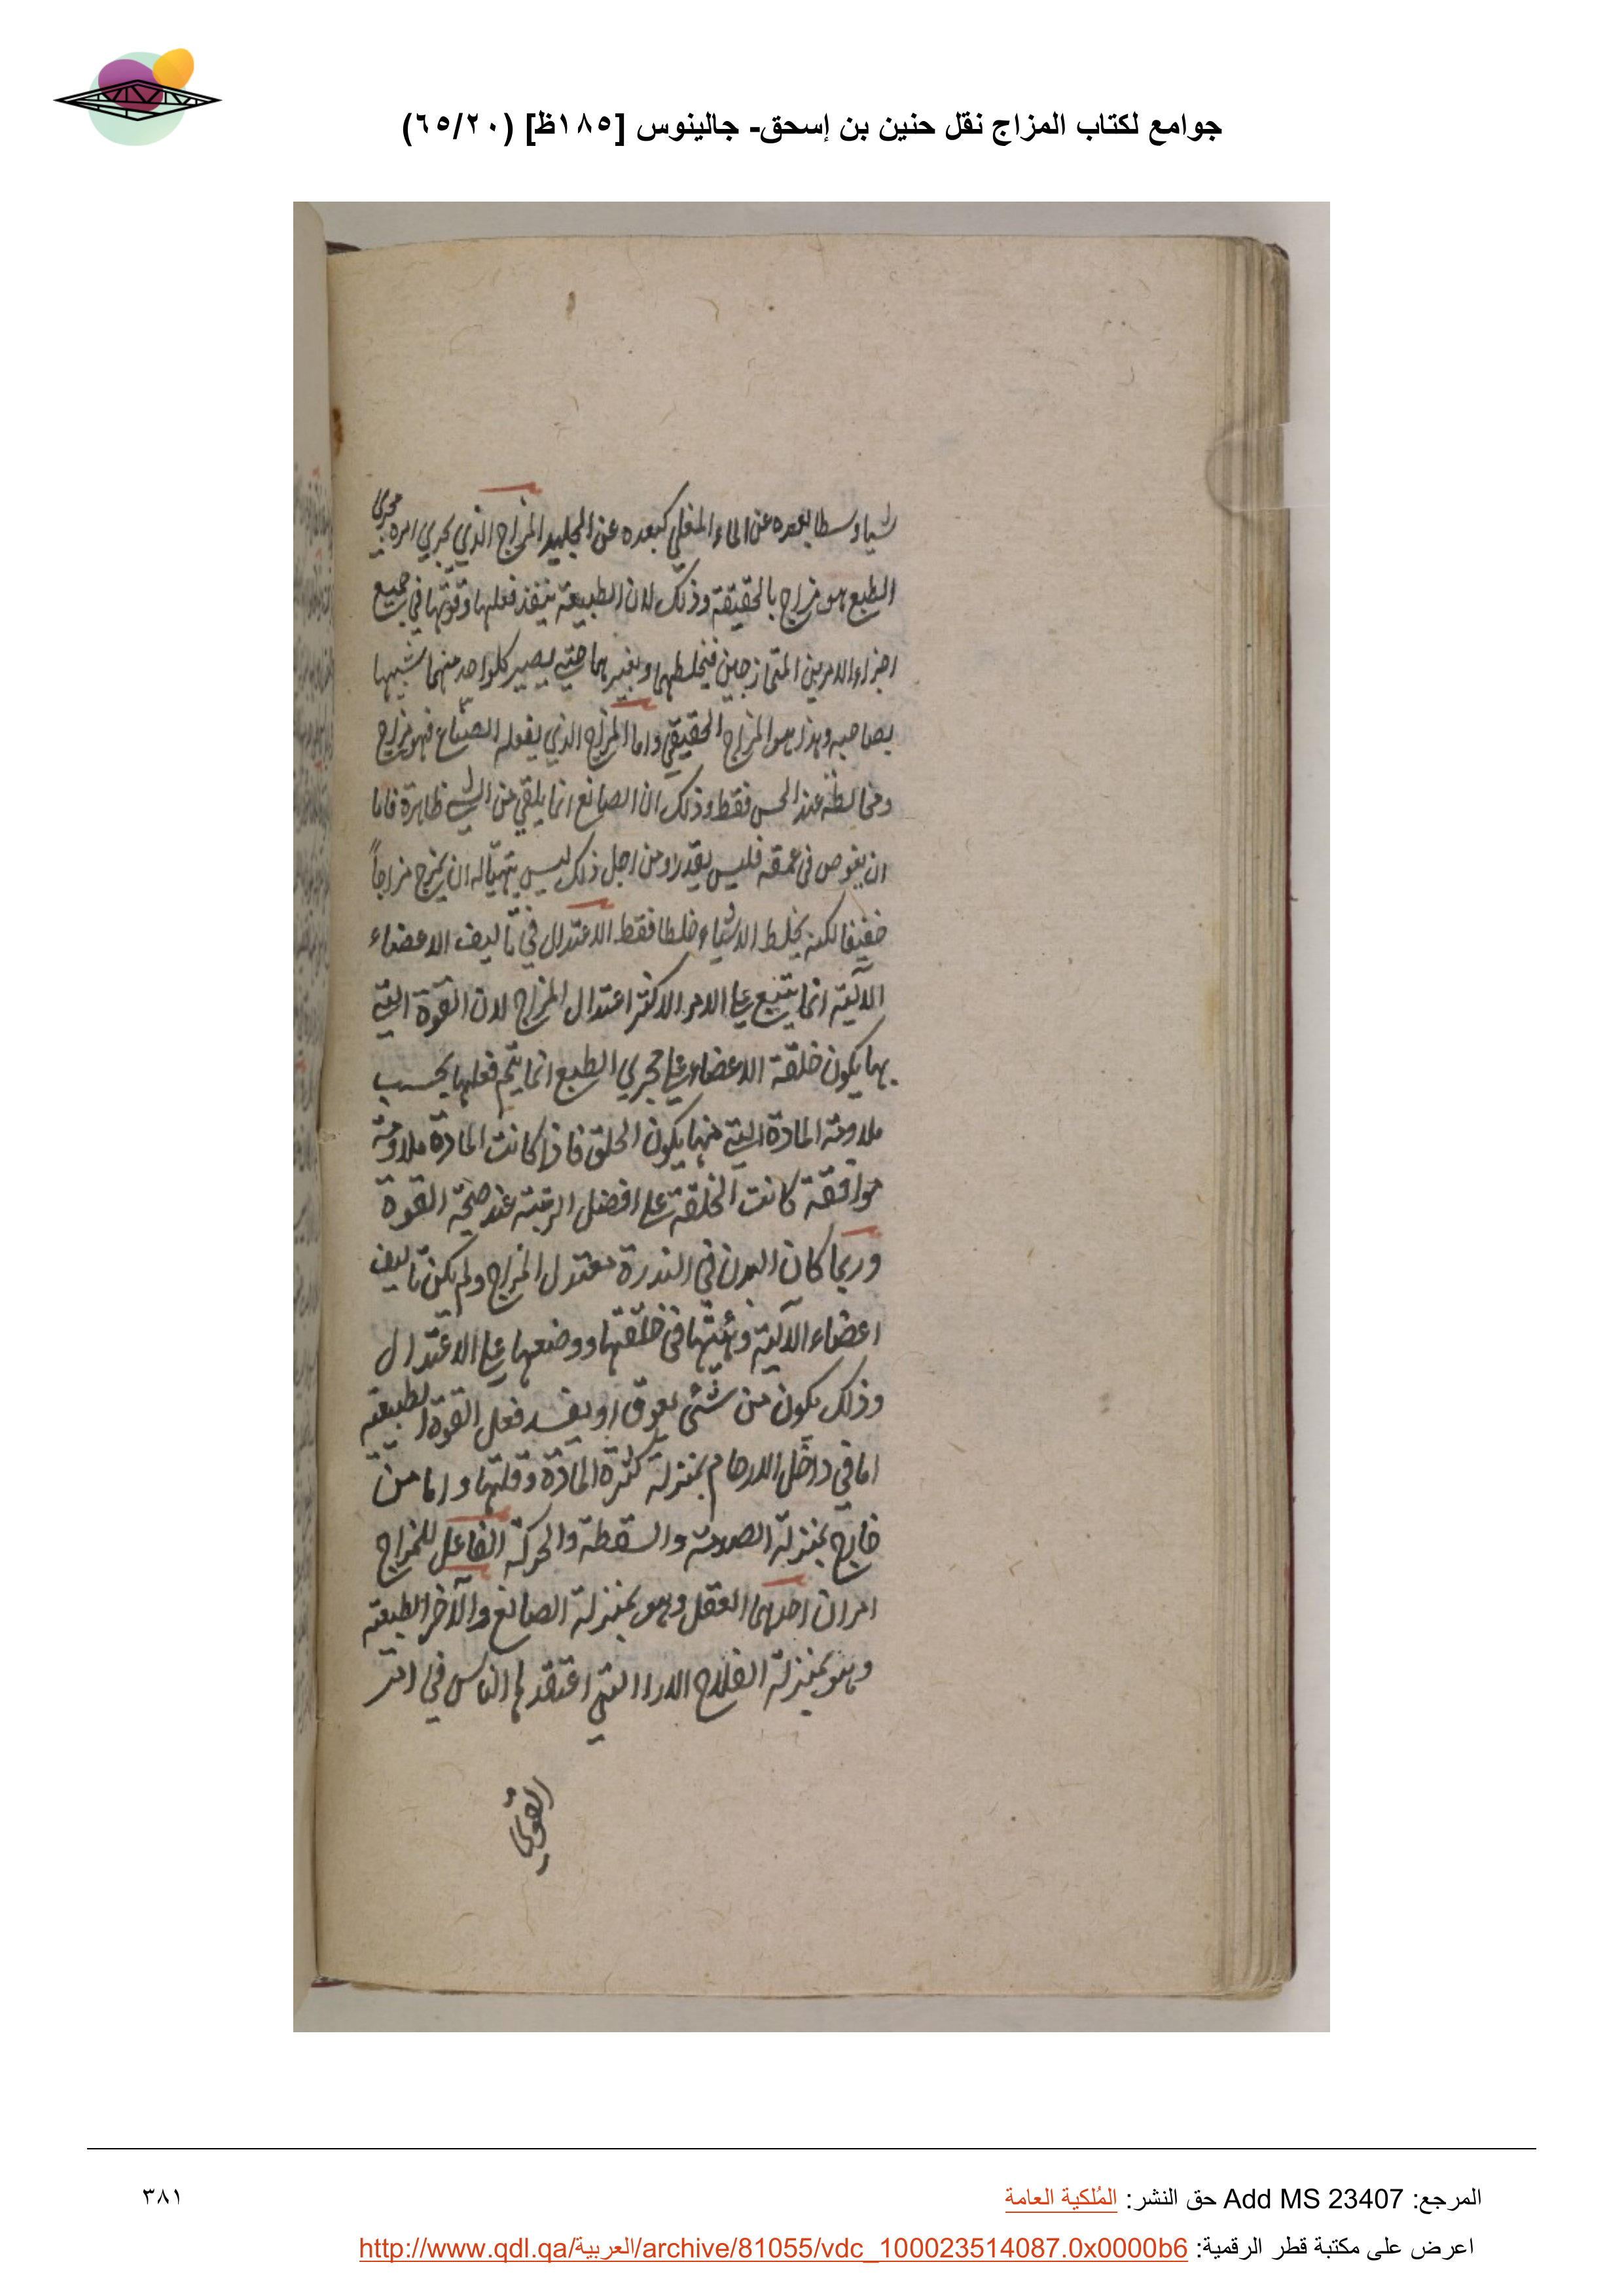 جوامع لكتاب المزاج نقل حنين بن إسحق- جالينوس [١٨٥ظ] (٦٥/٢٠)
شيا وسطا بعده عن الماء المغلي كبعده عن الجليد المزاج الذي يجري امره مجري
الطبع هو مزاج بالحقيقة وذلك لان الطبيعة ينفذ فعلها وقوتها في جميع
اجزاء الامرين المتمازجين فيخلطهما ويغيرهما حتي يصير كلواحد منهما شبيها
بصاحبه وهذا هو المزاج الحقيقي واما المزاج الذي يفعله الصناع فهو مزاج
ومخالطة عند الحس فقط وذلك ان الصانع انما يلقي من الشي ظاهرة فاما
ان يغوص في عمقه فليس يقدر ومن اجل ذلك ليس يتهيّاله ان يمزج مزاجاً
خفيفا لكنه يخلط الاشياء خلطا فقط الاعتدال في تأليف الاعضاء
الآلية انما يتبع علي الامر الاكثر اعتدال المزاج لان القوة التي
بها يكون خلقة الاعضاء علي مجري الطبع انما يتم فعلها بحسب
ملاومة المادة التي منها يكون الخلق فاذا كانت المادة ملاومة
موافقة كانت الخلقة علي افضل الرتبة عند صحة القوة
وربما كان البدن في الندرة معتدل المزاج ولم يكن تأليف
اعضاء الآلية وهيئتها في خلقتها ووضعها علي الاعتدال
وذلك يكون من شئ يعوق او يفسد فعل القوة الطبيعية
اما في داخل الارحام بمنزلة كثرة المادة وقلتها واما من
خارج بمنزلة الصدمة والسقطة والحركة الفاعل للمزاج
امران احدهما العقل وهو بمنزلة الصانع والآخر الطبيعة
وهو بمنزلة الفلاح الارا التي اعتقدها الناس في امر
القوي
المرجع: Add MS 23407 حق النشر: المُلكية العامة
٣٨١
اعرض على مكتبة قطر الرقمية: http://www.qdl.qa/العربية/archive/81055/vdc_100023514087.0x0000b6